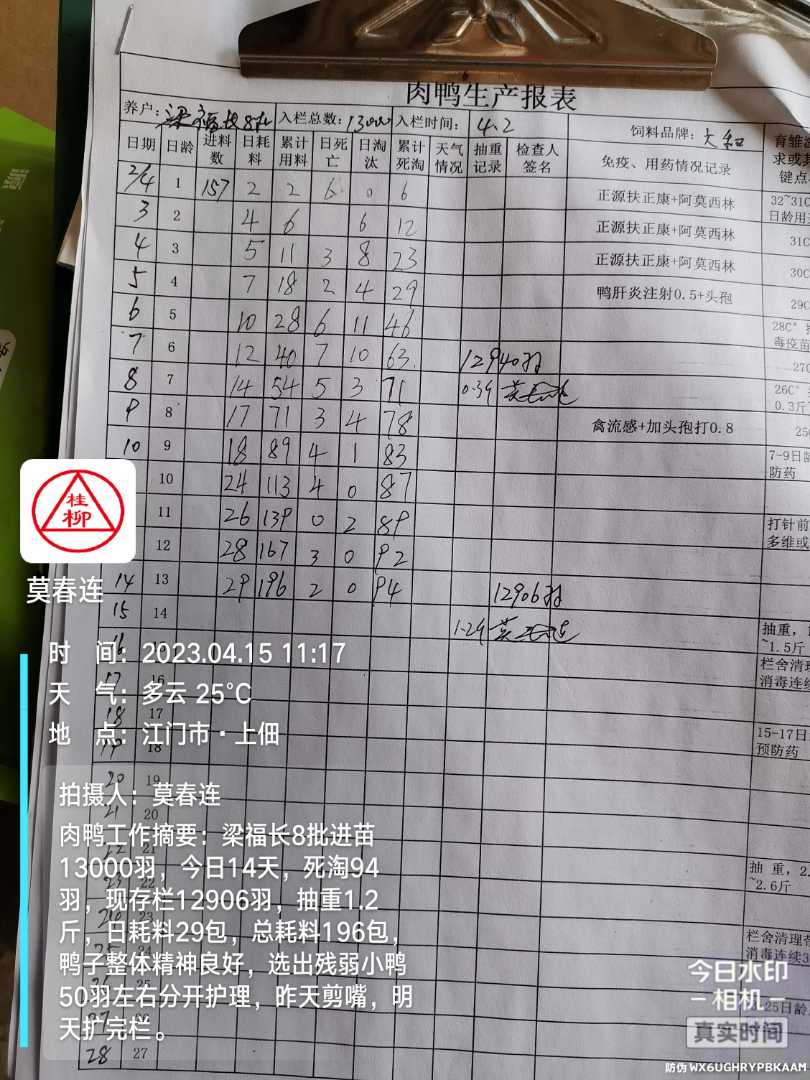 肉鸭生产报表
养户: 梁福长8批 入栏总数: 13000 入栏时间: 4.2 饲料品牌: 大和
日期 日龄 进料数 日耗料 累计用料 日死亡 日淘汰 累计死淘 天气情况 抽重记录 检查人签名 免疫、用药情况记录
2/4 1 157 2 2 6 0 6 正源扶正康+阿莫西林 32~31C
日龄用
3 2 4 6 6 12 正源扶正康+阿莫西林 31C
4 3 5 11 3 8 23 正源扶正康+阿莫西林 30C
5 4 7 18 2 4 29 鸭肝炎注射0.5+头孢 29C
6 5 10 28 6 11 46 28C°
毒疫苗
7 6 12 40 7 10 63. 12940羽 27C
8 7 14 54 5 3 71 0.39 26C°
0.3斤
9 8 17 71 3 4 78 禽流感+加头孢打0.8 25
10 9 18 89 4 1 83 7-9日龄
防药
10 24 113 4 0 87
11 26 139 0 2 89 打针前
多维或
12 28 167 3 0 92
14 13 29 196 2 0 94 12906羽
15 14 1.29 抽重,
~1.5斤
16 15 栏舍清理
消毒连续
17 16
18 17 15-17日
预防药
19 18
20 19
21 20
22 21
22 抽重,2.
~2.6斤
23
栏舍清理
消毒连续3
25
25日龄
27 26
28 27
桂柳
莫春连
时 间: 2023.04.15 11:17
天 气: 多云 25°C
地 点: 江门市·上佃
拍摄人: 莫春连
肉鸭工作摘要: 梁福长8批进苗
13000羽，今日14天，死淘94
羽，现存栏12906羽，抽重1.2
斤，日耗料29包，总耗料196包，
鸭子整体精神良好，选出残弱小鸭
50羽左右分开护理，昨天剪嘴，明
天扩完栏。
今日水印
相机
真实时间
防伪 WX6UGHRYPBKAAM